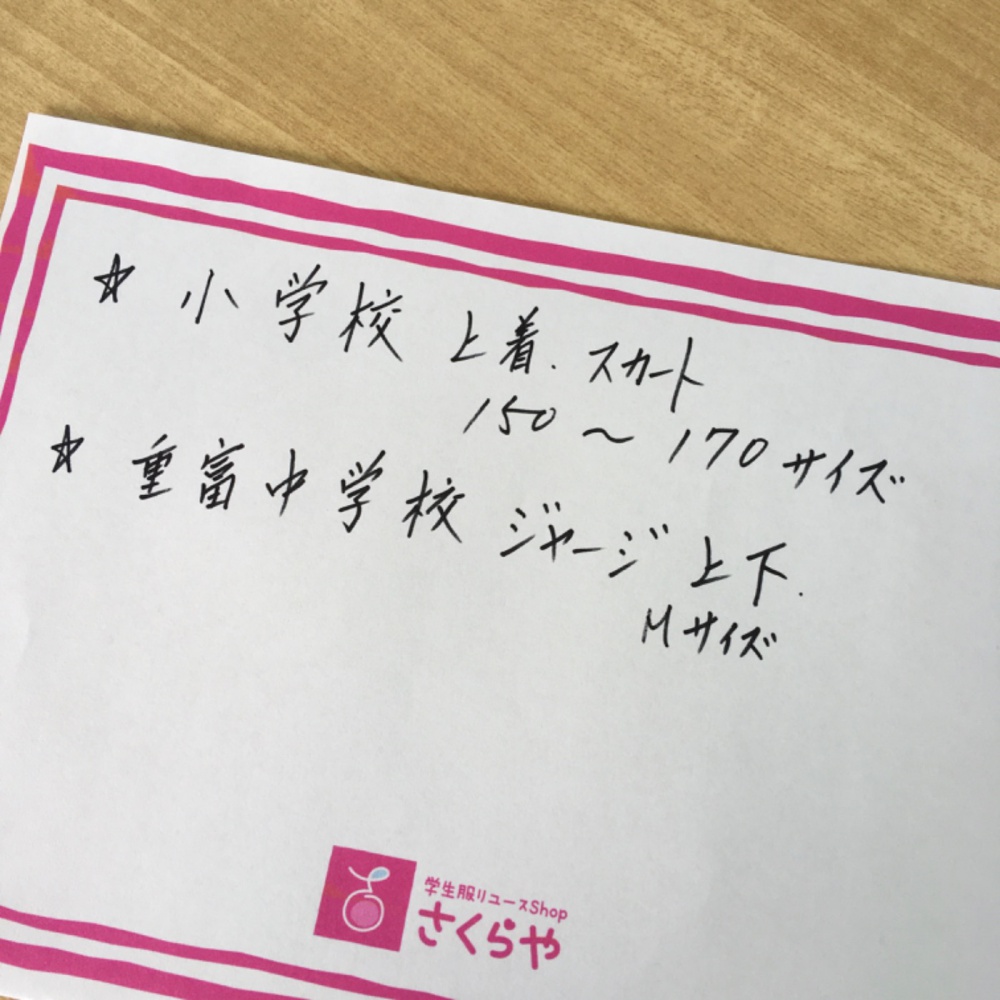 ☆ 小学校 上着. スカート
150 〜 170 サイズ
☆ 重富中学校 ジャージ 上下.
M サイズ
学生服リユースShop
さくらや